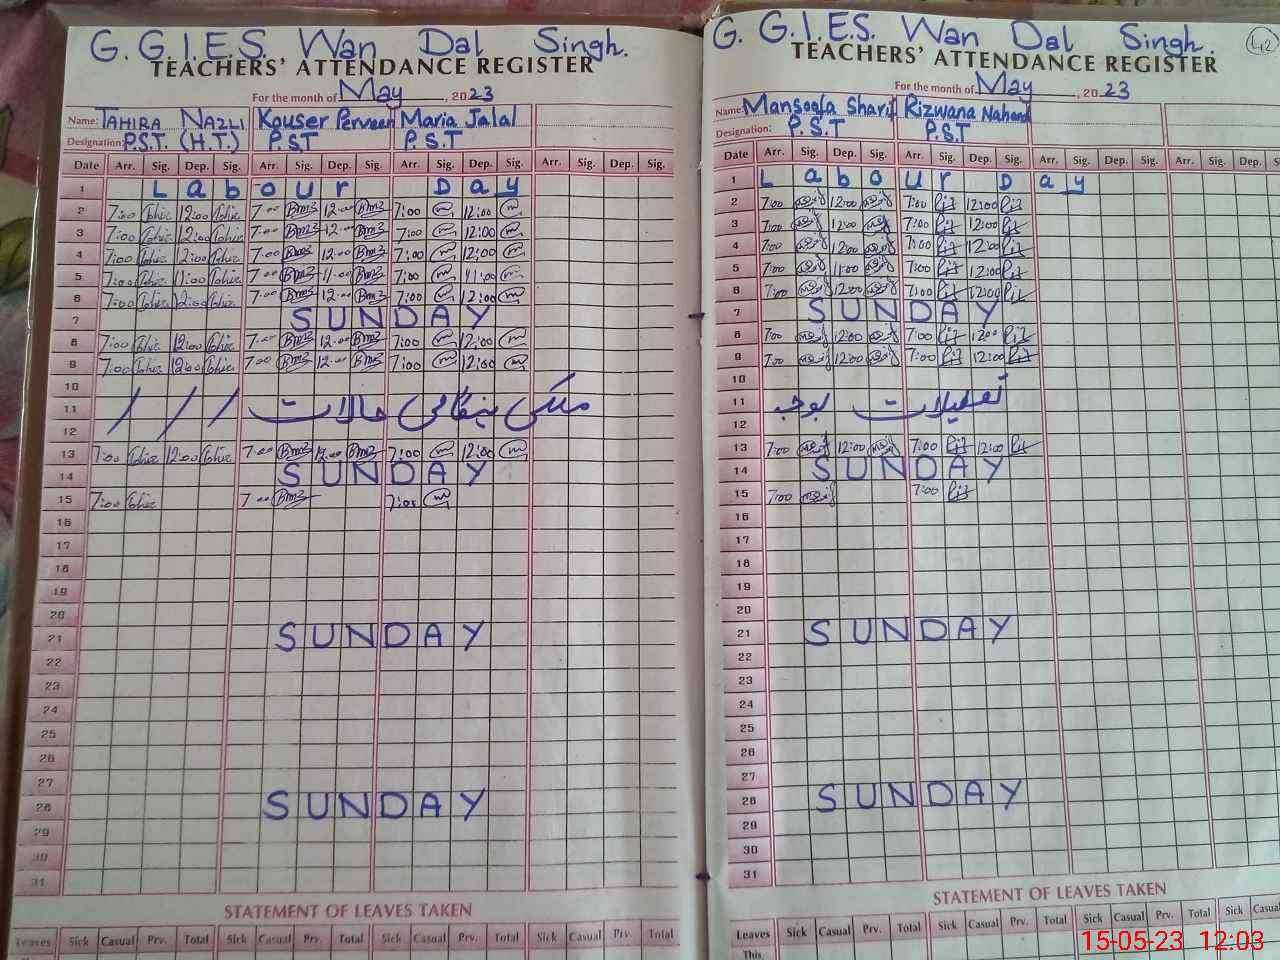 G. G.I.E.S. Wan Dal Singh.
TEACHERS' ATTENDANCE REGISTER
For the month of May, 2023
Name: TAHIRA NAZLI Kouser Perveen Maria Jalal
Designation: P.S.T. (H.T.) P.S.T P.S.T
Date Arr. Sig. Dep. Sig. Arr. Sig. Dep. Sig. Arr. Sig. Dep. Sig. Arr. Sig. Dep. Sig.
1 Labour Day
2 7:00 12:00 7:00 12:00 7:00 12:00
3 7:00 12:00 7:00 12:00 7:00 12:00
4 7:00 12:00 7:00 12:00 7:00 12:00
5 7:00 11:00 7:00 11:00 7:00 11:00
6 7:00 12:00 7:00 12:00 7:00 12:00
7 SUNDAY
8 7:00 12:00 7:00 12:00 7:00 12:00
9 7:00 12:00 7:00 12:00 7:00 12:00
10
11 ملکی ہنگامی حالات / / /
12
13 7:00 12:00 7:00 12:00 7:00 12:00
14 SUNDAY
15 7:00 7:00 7:00
16
17
18
19
20
21 SUNDAY
22
23
24
25
26
27
28 SUNDAY
29
30
31
STATEMENT OF LEAVES TAKEN
Leaves Sick Casual Prv. Total Sick Casual Prv. Total Sick Casual Prv. Total Sick Casual Prv. Total
G. G.I.E.S. Wan Dal Singh.
42
TEACHERS' ATTENDANCE REGISTER
For the month of May, 2023
Name: Mansoofa Sharif Rizwana Nahend
Designation: P.S.T P.S.T
Date Arr. Sig. Dep. Sig. Arr. Sig. Dep. Sig. Arr. Sig. Dep. Sig. Arr. Sig. Dep.
1 Labour Day
2 7:00 12:00 7:00 12:00
3 7:00 12:00 7:00 12:00
4 7:00 12:00 7:00 12:00
5 7:00 11:00 7:00 12:00
6 7:00 12:00 7:00 12:00
7 SUNDAY
8 7:00 12:00 7:00 12:00
9 7:00 12:00 7:00 12:00
10
11 تعطیلات بوجہ
12
13 7:00 12:00 7:00 12:00
14 SUNDAY
15 7:00 7:00
16
17
18
19
20
21 SUNDAY
22
23
24
25
26
27
28 SUNDAY
29
30
31
STATEMENT OF LEAVES TAKEN
Leaves Sick Casual Prv. Total Sick Casual Prv. Total Sick Casual Prv. Total Sick Casual
This
15-05-23 12:03